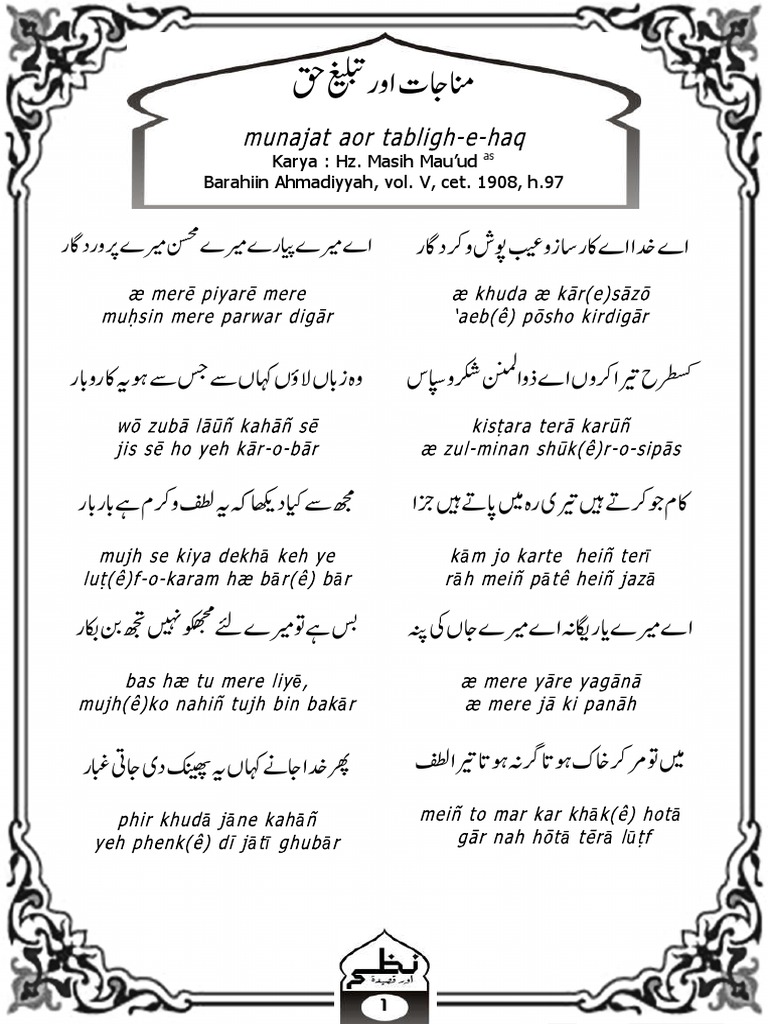 مناجات اور تبلیغ حق
munajat aor tabligh-e-haq
Karya : Hz. Masih Mau’ud as
Barahiin Ahmadiyyah, vol. V, cet. 1908, h.97
اے خدا اے کارساز و عیب پوش و کردگار
اے میرے پیارے میرے محسن میرے پروردگار
æ khuda æ kār(e)sāzō
‘aeb(ê) pōsho kirdigār
æ merē piyarē mere
muḥsin mere parwar digār
کسطرح تیرا کروں اے ذوالمنن شکر و سپاس
وہ زباں لاؤں کہاں سے جس سے ہو یہ کاروبار
kisṭara terā karūñ
æ zul-minan shūk(ê)r-o-sipās
wō zubā lāūñ kahāñ sē
jis sē ho yeh kār-o-bār
کام جو کرتے ہیں تیری رہ میں پاتے ہیں جزا
مجھ سے کیا دیکھا کہ یہ لطف و کرم ہے بار بار
kām jo karte heiñ terī
rāh meiñ pātê heiñ jazā
mujh se kiya dekhā keh ye
luṭ(ê)f-o-karam hæ bār(ê) bār
اے میرے یار یگانہ اے میرے جاں کی پنہ
بس ہے تو میرے لئے مجھکو نہیں تجھ بن بکار
æ mere yāre yagānā
æ mere jā ki panāh
bas hæ tu mere liyē,
mujh(ê)ko nahiñ tujh bin bakār
میں تو مر کر خاک ہوتا گر نہ ہوتا تیرا لطف
پھر خدا جانے کہاں یہ پھینک دی جاتی غبار
meiñ to mar kar khāk(ê) hotā
gār nah hōtā tērā lūṭf
phir khudā jāne kahāñ
yeh phenk(ê) dī jātī ghubār
نظم
اور قصیدة
1